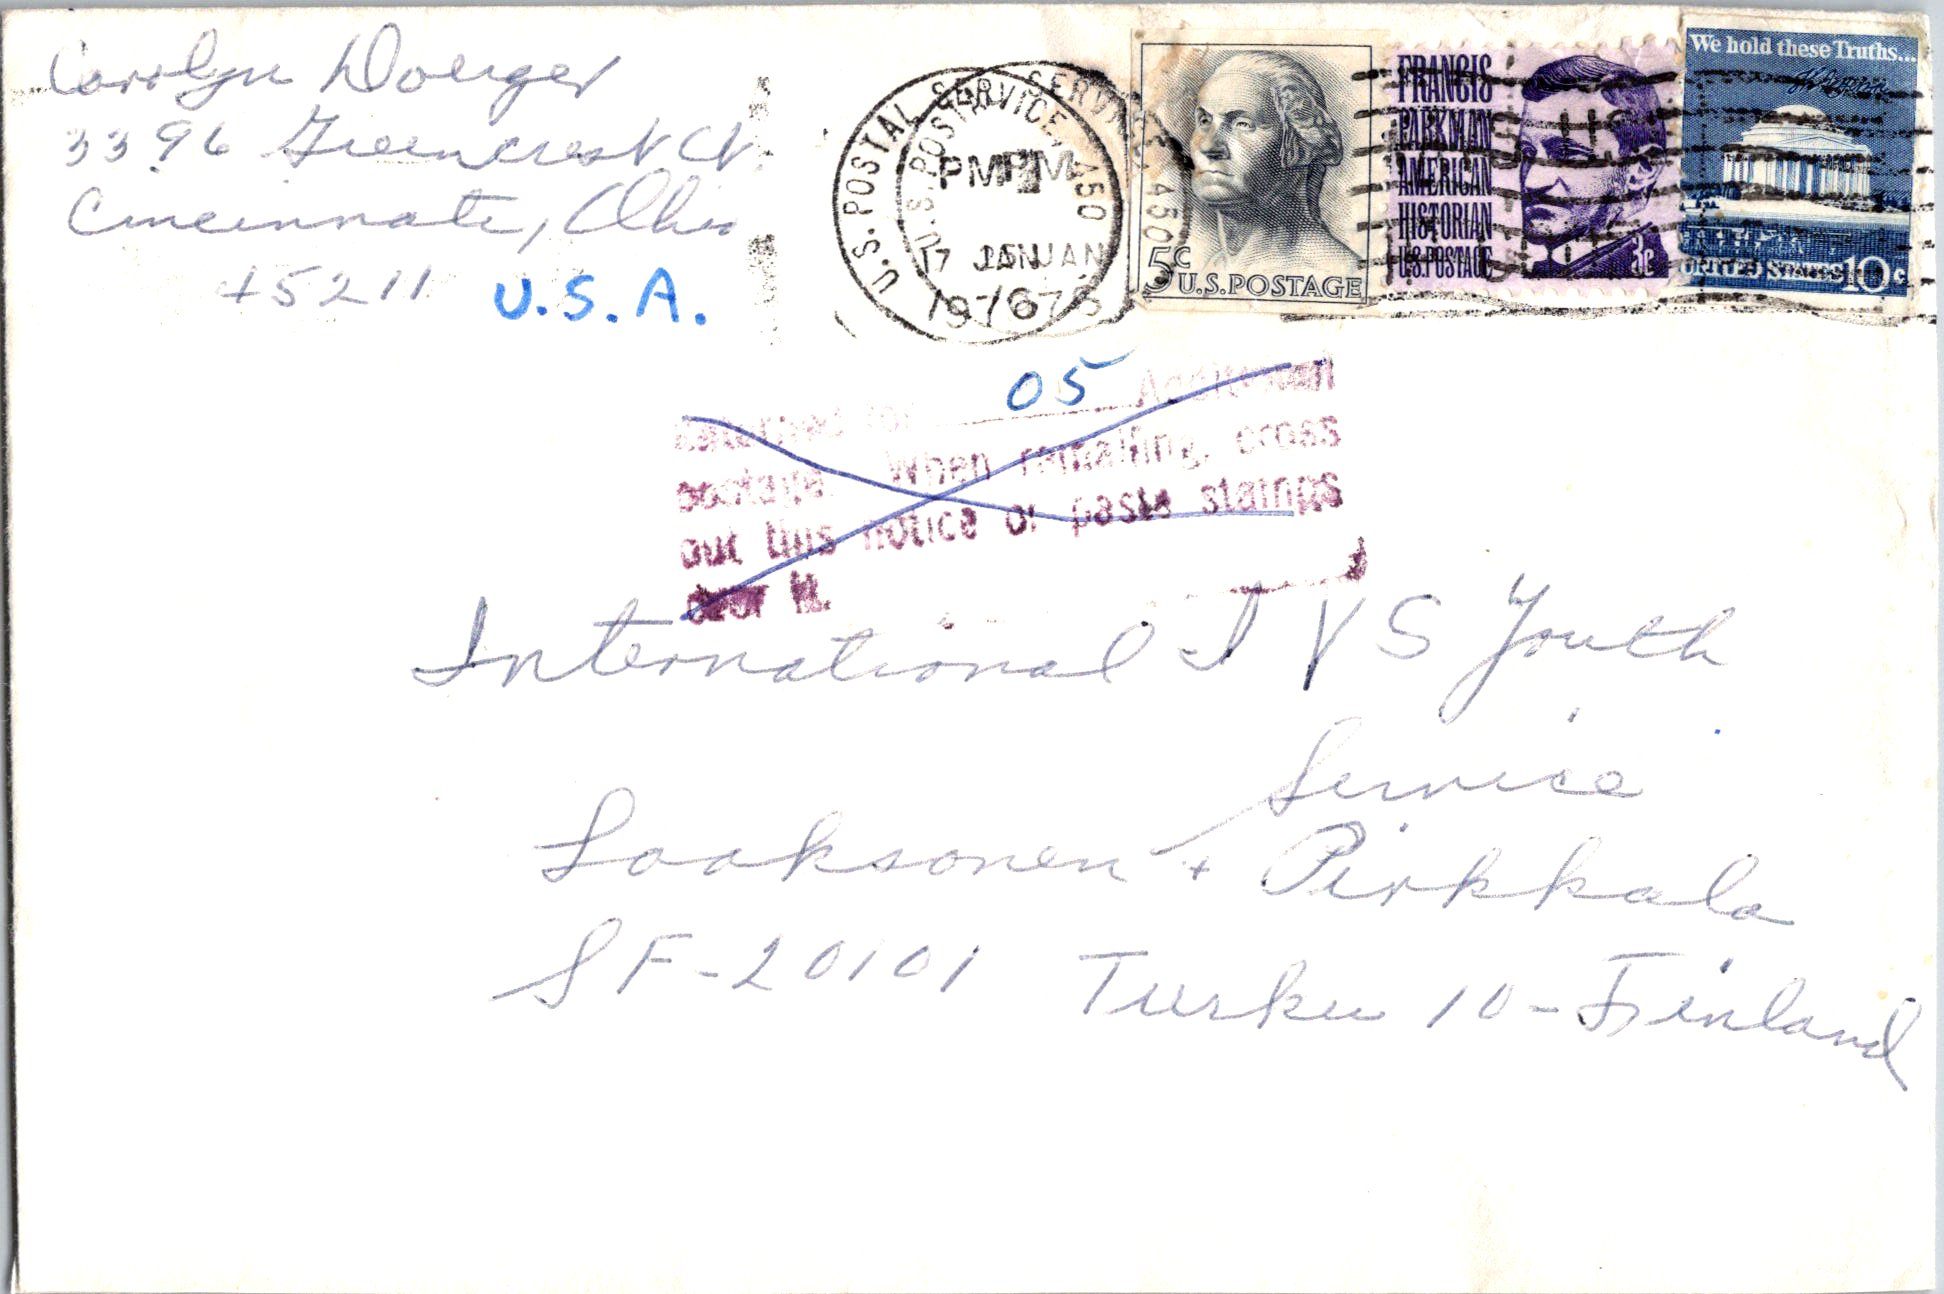 Carolyn Doerger
3396 Greencrest Ct
Cincinnati, Ohio
45211 U.S.A.
U.S. POSTAL SERVICE 450
PM
JAN
1976
U.S. POSTAL SERVICE 450
PM
17 JAN
1976
5c
U.S. POSTAGE
FRANCIS
PARKMAN
AMERICAN
HISTORIAN
U.S. POSTAGE
3c
We hold these Truths...
UNITED STATES 10c
05 Additional
postage. When remailing, cross
out this notice or paste stamps
over it.
International I V S Youth
Service
Laaksonen + Pirkkala
SF-20101 Turku 10 - Finland